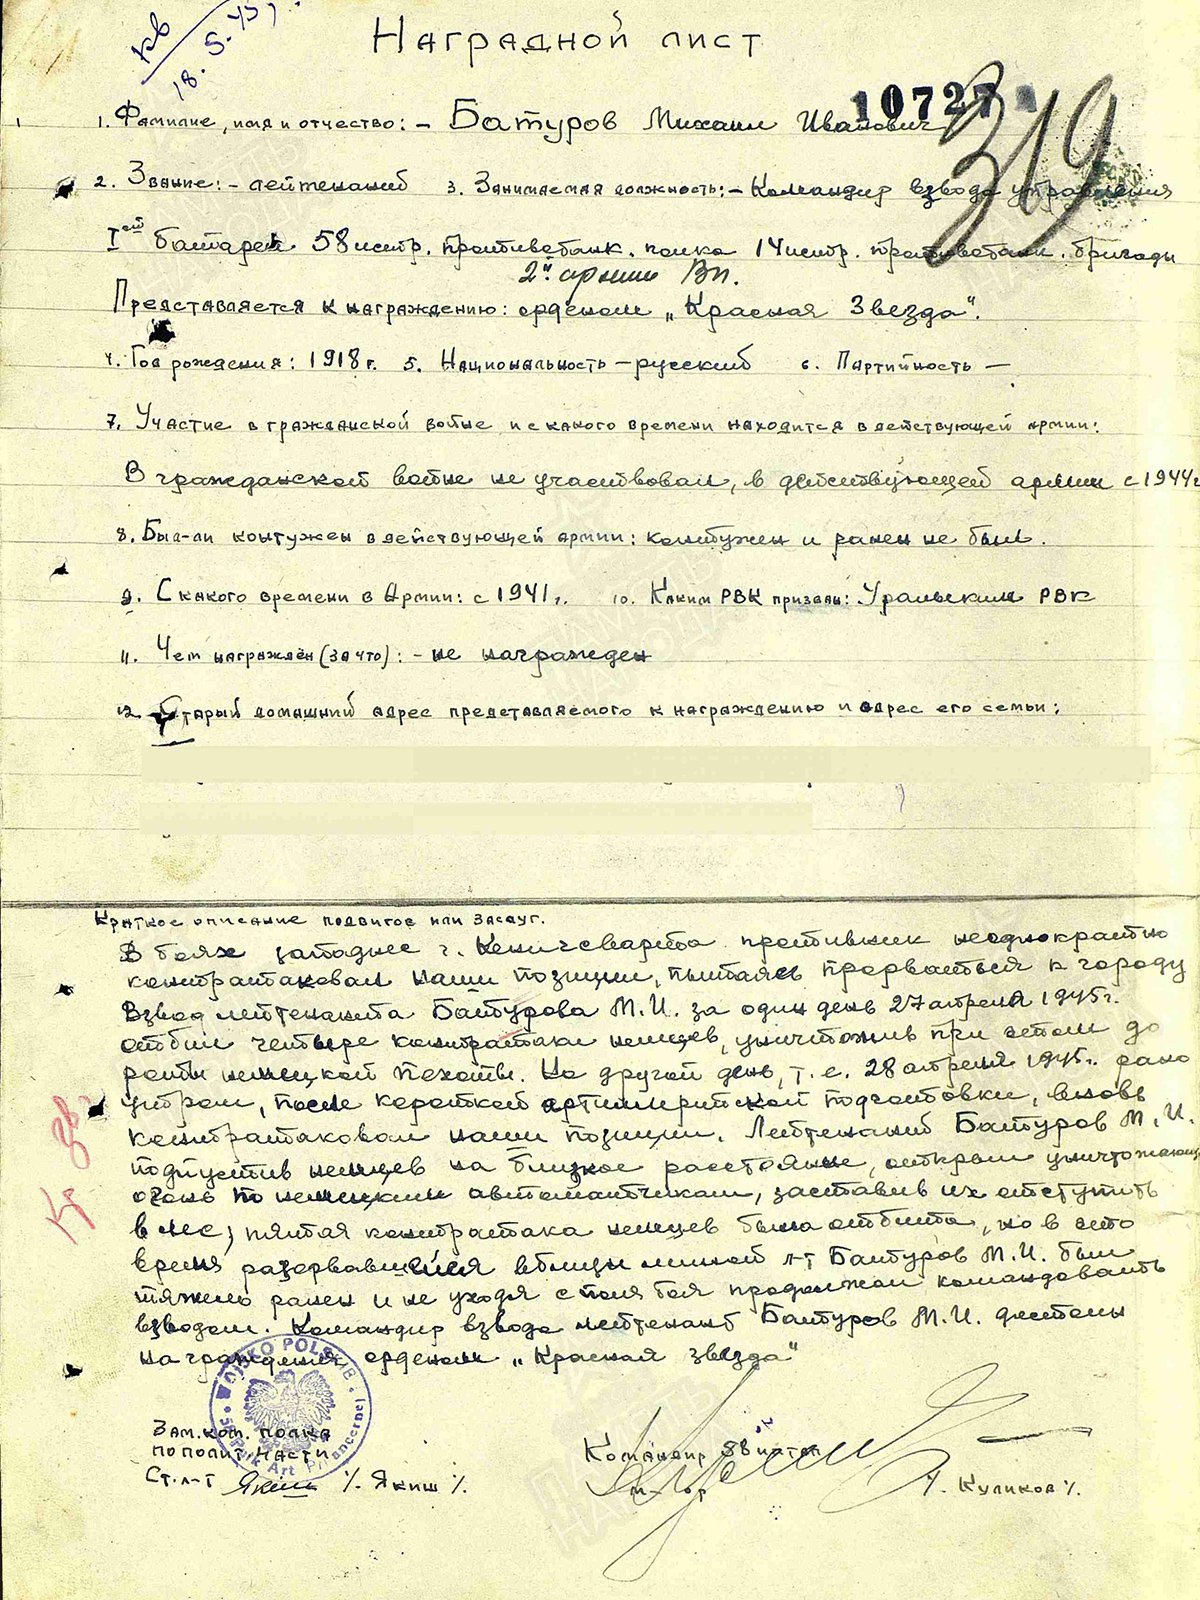 кв
18.5.45г
Наградной лист
10727
319
1. Фамилие, имя и отчество: - Батуров Михаил Иванович
2. Звание: - лейтенант 3. Занимаемая должность: - Командир взвода управления
Iой батареи 58 истр. противотанк. полка 14 истр. противотанк. бригады
2й армии ВП.
Представляется к награждению: орденом „Красная Звезда".
4. Год рождения: 1918 г. 5. Национальность - русский 6. Партийность —
7. Участие в гражданской войне и с какого времени находится в действующей армии:
В гражданской войне не участвовал, в действующей армии с 1944 г
8. Был-ли контужен в действующей армии: контужен и ранен не был.
9. С какого времени в Армии: с 1941 г. 10. Каким РВК призван: Уральским РВК
11. Чем награжден (за что): - не награжден
12. Старый домашний адрес представляемого к награждению и адрес его семьи:
Краткое описание подвигов или заслуг.
В боях западнее г. Кенигсварта противник неоднократно
контратаковал наши позиции, пытаясь прорваться к городу
Взвод лейтенанта Батурова М.И. за один день 27 апреля 1945 г.
отбил четыре контратаки немцев, уничтожив при этом до
роты немецкой пехоты. На другой день, т.е. 28 апреля 1945 г. рано
утром, после короткой артиллерийской подготовки, вновь
контратаковал наши позиции. Лейтенант Батуров М.И.
подпустив немцев на близкое расстояние, открыл уничтожающий
огонь по немецким автоматчикам, заставив их отступить
в лес, пятая контратака немцев была отбита, но в это
время разорвавшейся вблизи миной л-т Батуров М.И. был
тяжело ранен и не уходя с поля боя продолжал командовать
взводом. Командир взвода лейтенант Батуров М.И. достоин
награждения орденом „Красная звезда"
WOJSKO POLSKIE
58 Pułk Art. P/Pancernej
Зам. ком. полка
по полит. части
Ст. л-т Якиш /. Якиш /.
Командир 58 иптап
м-ор /. Куликов /.